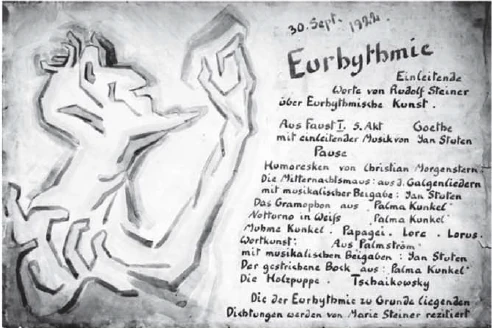 30. Sept. 1922.
Eurhythmie
Einleitende
Worte von Rudolf Steiner
über Eurhythmische Kunst.
Aus Faust I. 5. Akt Goethe
mit einleitender Musik von Jan Stuten
Pause
Humoresken von Christian Morgenstern:
Die Mitternachtsmaus: aus d. Galgenliedern
mit musikalischer Beigabe: Jan Stuten
Das Gramophon aus "Palma Kunkel"
Nottorno in Weiß "Palma Kunkel"
Muhme Kunkel. Papagei. Lore. Lorus.
Wortkunst: Aus Palmström"
mit musikalischen Beigaben: Jan Stuten
Der gestriehene Bock aus: "Palma Kunkel"
Die Holzpuppe. Tschaikowsky
Die der Eurhythmie zu Grunde liegenden
Dichtungen werden von Marie Steiner rezitiert